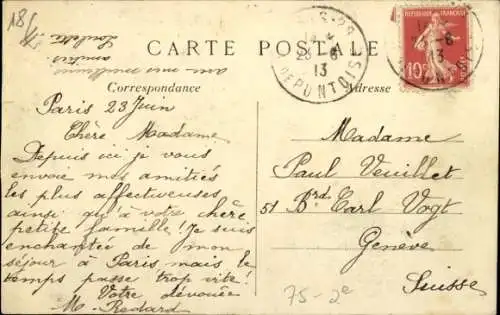 18f
CARTE POSTALE
Correspondance
Adresse
13
DEPUNTOIS
RÉPUBLIQUE FRANÇAISE
10
13
Paris 23 Juin
Chère Madame
Depuis ici je vous
envoie mes amitiés
les plus affectueuses
ainsi qu'à votre chère
petite famille! Je suis
enchantée de mon
séjour à Paris mais le
temps passe trop vite!
Votre dévouée
M. Redard
Madame
Paul Veuillet
51 Brd. Carl Vogt
Genève
Suisse
75-2e